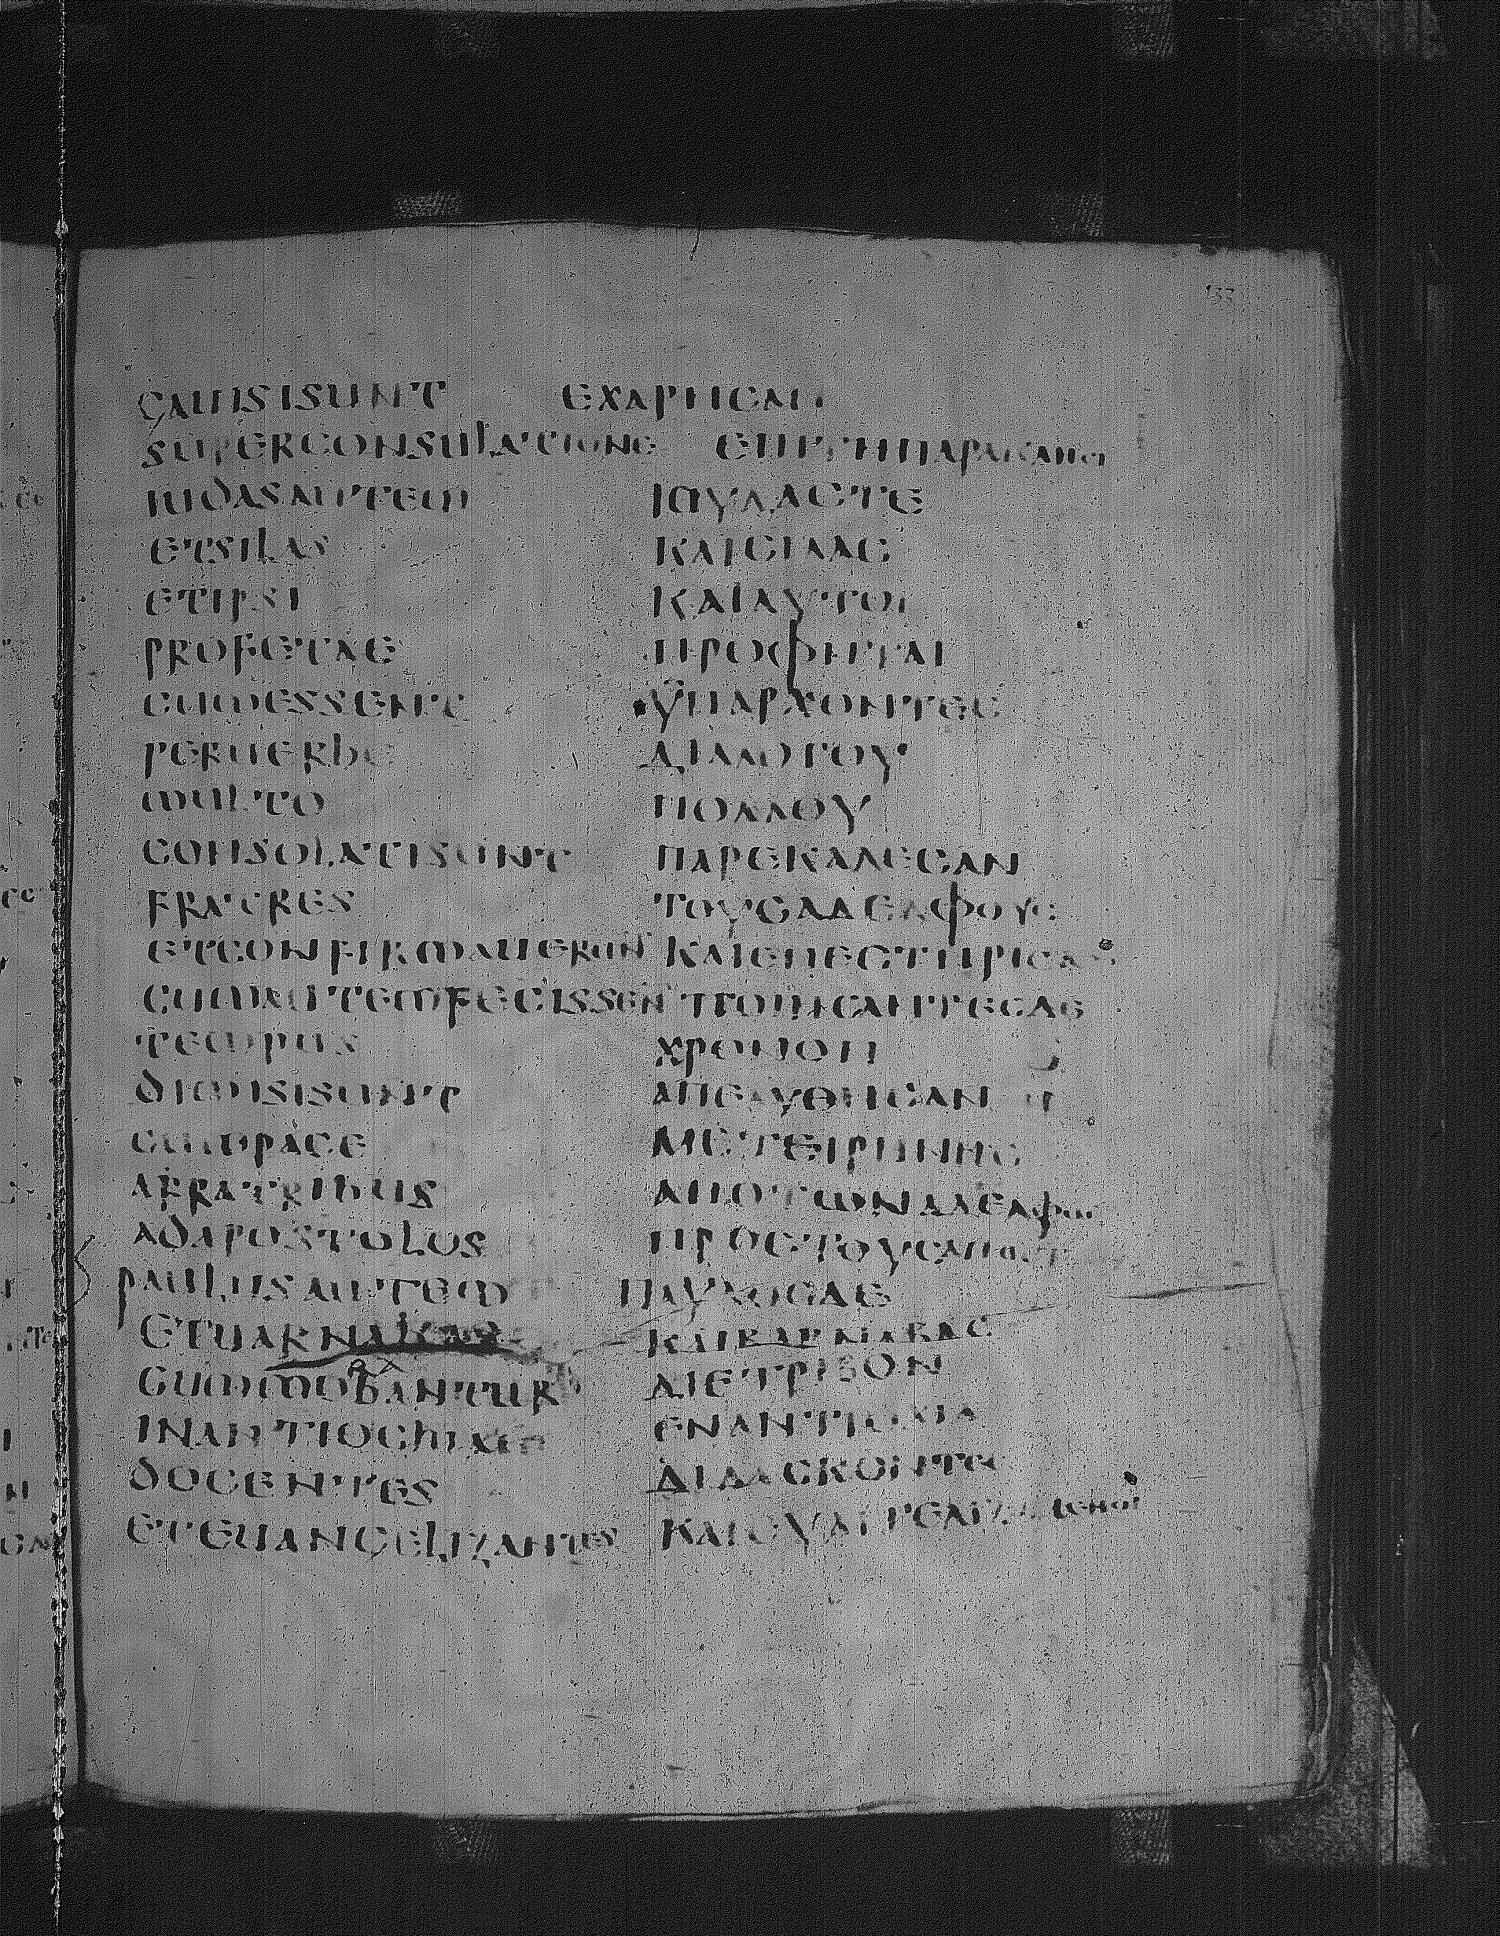 GAUISISUNT
SUPERCONSULATIONE
IUDASAUTEM
ETSILAS
ETIPSI
PROFETAE
CUMESSENT
MULTO
CONSOLATISUNT
FRATRES
ETCONFIRMAUERUN
CUMAUTEMFECISSEN
TEMPUS
DIMISISUNT
CUMPACE
AFRATRIBUS
ADAPOSTOLUS
PAULUSAUTEM
ETUARNABAS
CUMMORABANTUR
INANTIOCHIAM
DOCENTES
ETEUANGELIZANTES
ΕΧΑΡΗϹΑΝ
ΕΠΙΤΗΠΑΡΑΚΛΗϹΙ
ΙΟΥΔΑϹΤΕ
ΚΑΙϹΙΛΑϹ
ΚΑΙΑΥΤΟΙ
ΠΡΟΦΗΤΑΙ
ΫΠΑΡΧΟΝΤΕϹ
ΔΙΑΛΟΓΟΥ
ΠΟΛΛΟΥ
ΠΑΡΕΚΑΛΕϹΑΝ
ΤΟΥϹΑΔΕΛΦΟΥϹ
ΚΑΙΕΠΕϹΤΗΡΙϹΑΝ
ΠΟΙΗϹΑΝΤΕϹΔΕ
ΧΡΟΝΟΝ
ΑΠΕΛΥΘΗϹΑΝ
ΜΕΤΕΙΡΗΝΗϹ
ΑΠΟΤΩΝΑΔΕΛΦΩΝ
ΠΡΟϹΤΟΥϹΑΠΟϹΤ
ΠΑΥΛΟϹΔΕ
ΚΑΙΒΑΡΝΑΒΑϹ
ΔΙΕΤΡΙΒΟΝ
ΕΝΑΝΤΙΟΧΙΑ
ΔΙΔΑϹΚΟΝΤΕϹ
ΚΑΙΕΥΑΓΓΕΛΙΖΟΜΕΝΟΙ